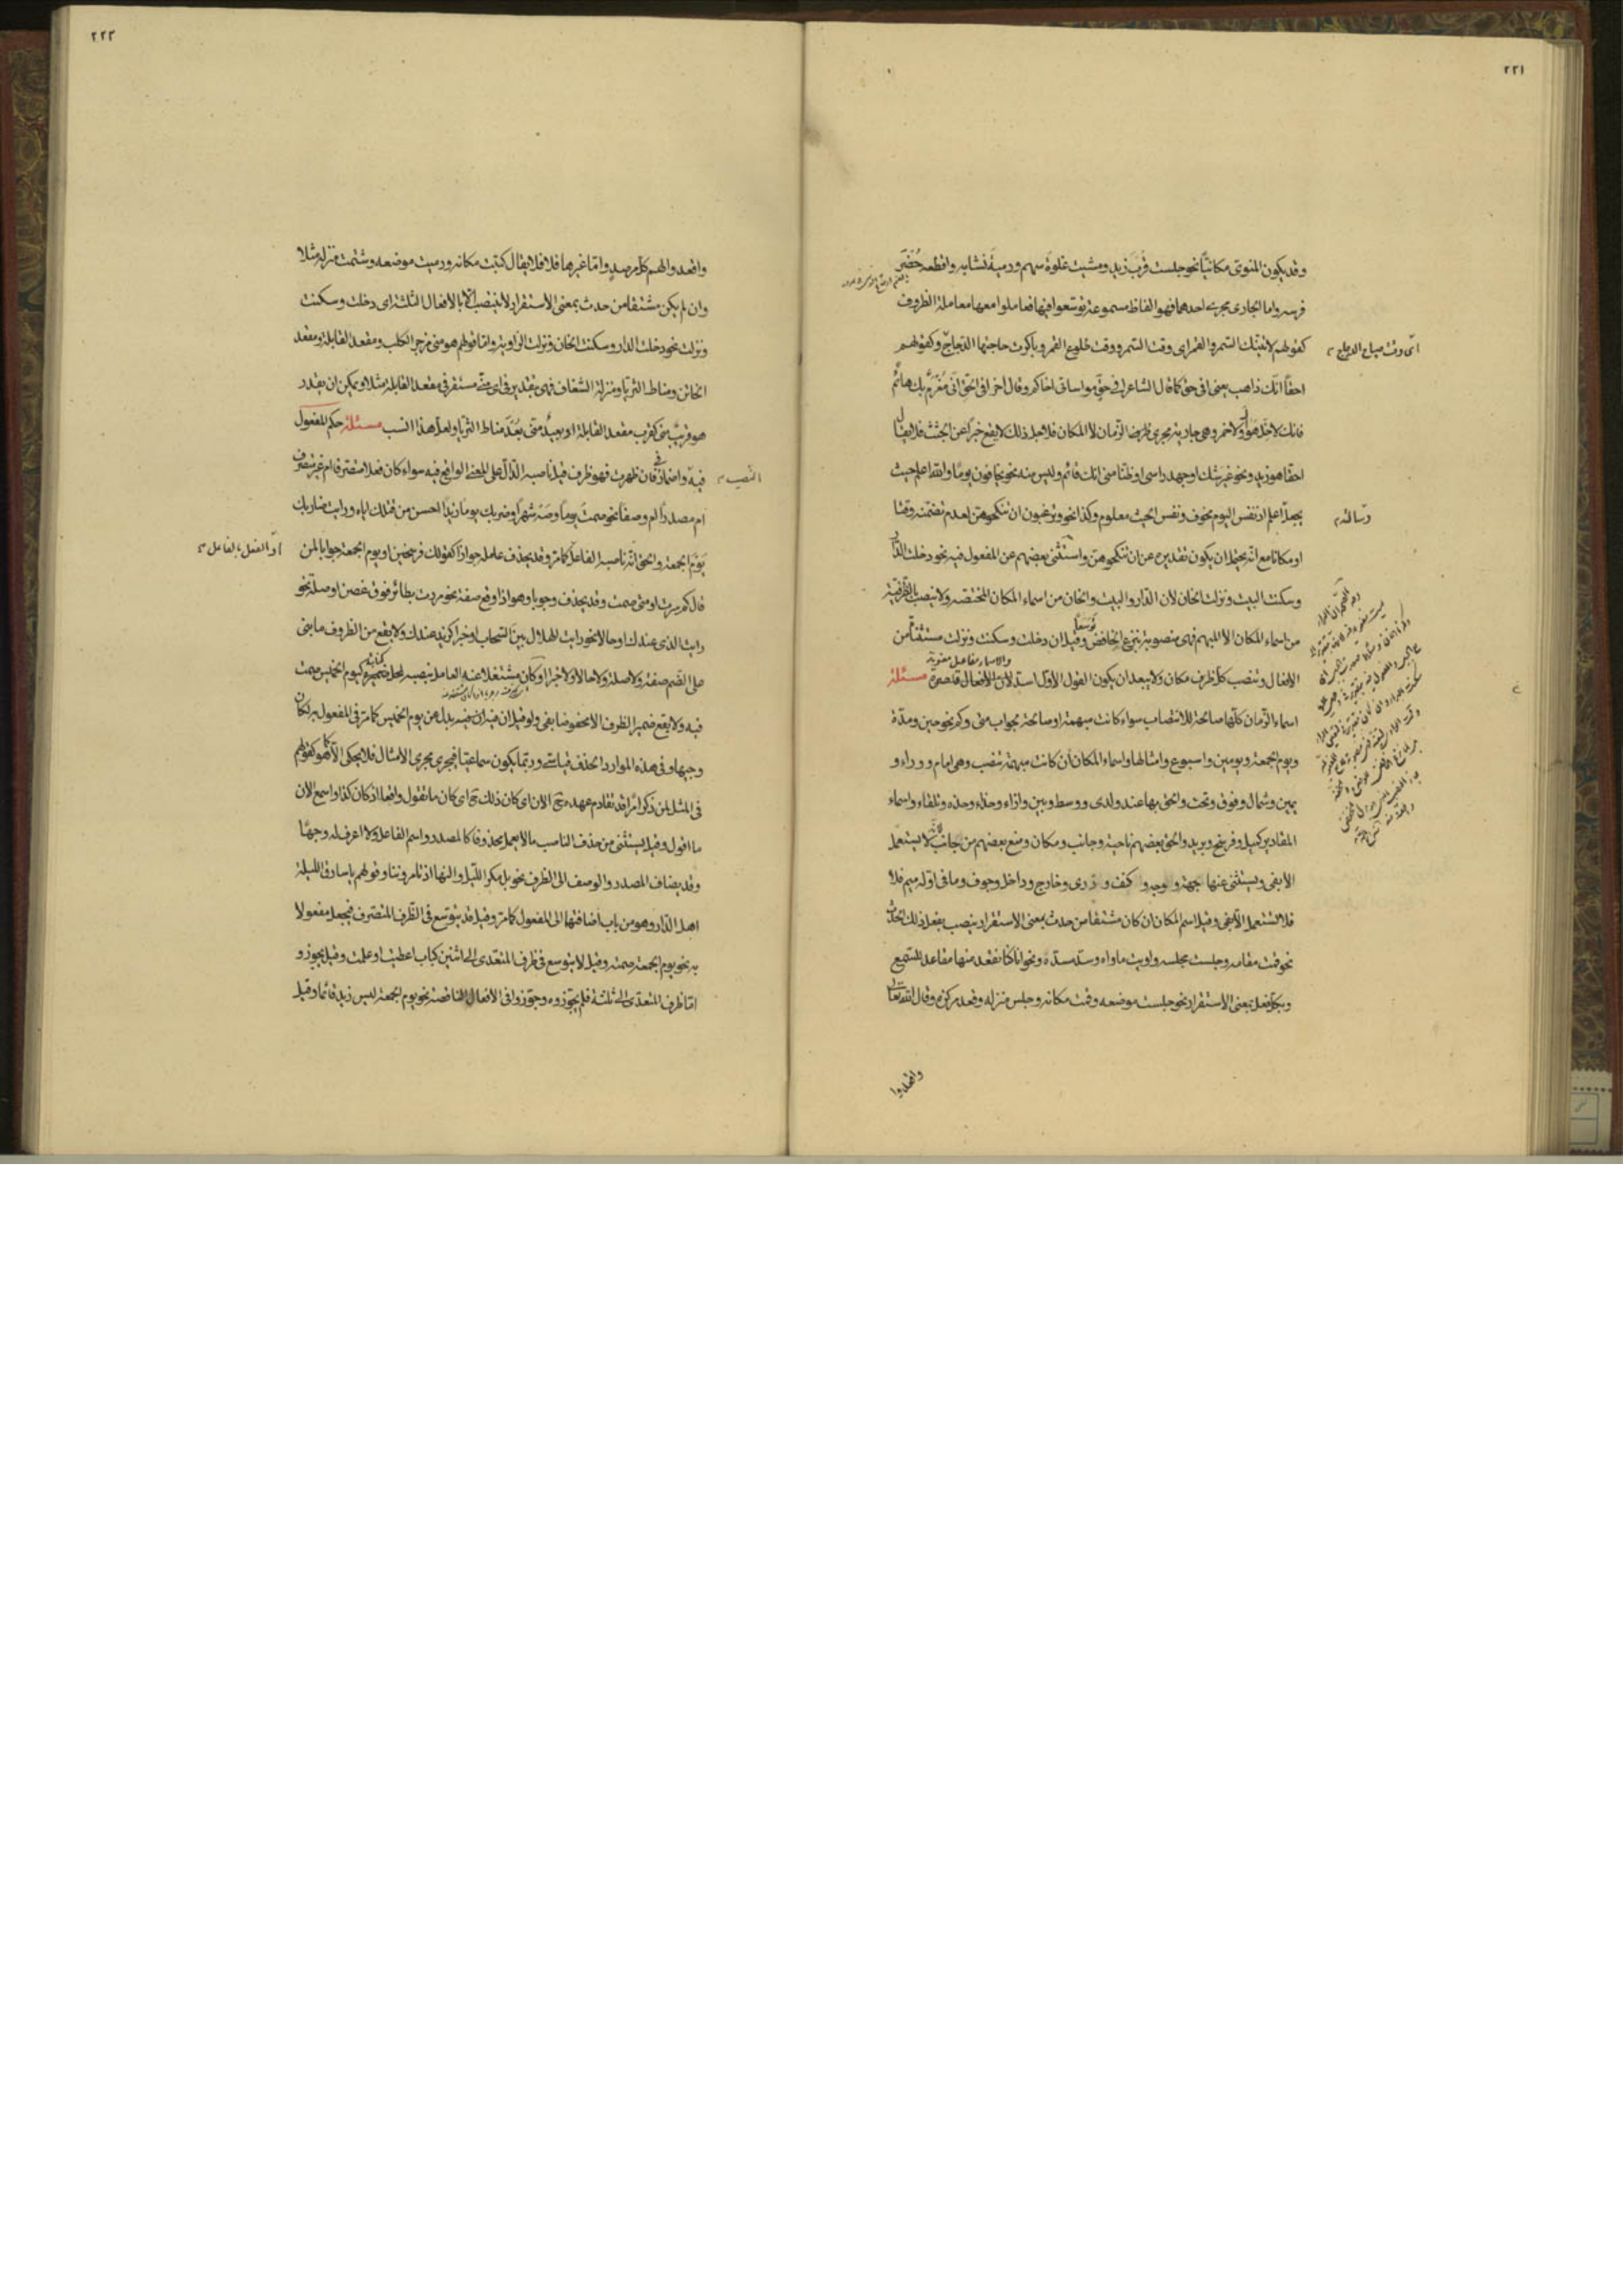 ٢٢١
وقد يكون المنوى مكانيّا نحو جلست قرب زيد ومشيت غلوة سهم ورمية نشابه واقطعه حُضَر
فرسه واما الجارى مجرى احدهما فهو الفاظ مسموعة توسعوا فيها فعاملوا معها معاملة الظروف
كقولهم لا نيتك السمر والقمر اى وقت السمر ووقت طلوع القمر وباكرت حاجتها الدجاج وكقولهم
اى وقت صياح الدجاج
احقاً انّك ذاهب يعنى افى حق كما قال الشاعر افى حقّ مواساتى اخاكم وقال اخر افى الحقّ انّى مُغرَمٌ بك هائم
فانك لا خلّ هواك ولا خمر وهى جارية مجرى ظرف الزمان لا المكان فلاجل ذلك لا يقع خبراً عن الجثث فلا يقال
احقا هو زيد ونحو غير شك او جهد راسى او ظنا منى انك قائم وليس منه نحو يخافون يوما والله اعلم حيث
يجعل اعلم اذ نفس اليوم يخوف ونفس الحيث معلوم وكذا نحو وترغبون ان تنكحوهن لعدم تضمّنه وقتا
رسالته
او مكانا مع انّه يحتمل ان يكون تقديره عن ان تنكحوهن واستثنى بعضهم عن المفعول فيه نحو دخلت الدار
وسكنت البيت ونزلت الخان لان الدار والبيت والخان من اسماء المكان المختصه ولا ينصب بالظرفية
من اسماء المكان الا المبهم فهى منصوبة بنزع الخافض توسّعاً وقيل ان دخلت وسكنت ونزلت مستثنا من
الافعال وتنصب كل ظرف مكان ولا يبعد ان يكون القول الاوّل اسدّ لان الافعال قاصرة مسئلة
اسماء الزمان كلّها صالحة للانتصاب سواء كانت مبهمة او صالحة بجواب متى وكم نحو حين ومدّة
ويوم الجمعة ويومين واسبوع وامثالها واسماء المكان ان كانت مبهمة تنصب وهى امام ووراء و
يمين وشمال وفوق وتحت والحق بها عند ولدى ووسط وبين وازاء وحذاء وحذه وتلقاء واسماء
المقادير كميل وفرسخ وبريد والحق بعضهم ناحية وجانب ومكان ومنع بعضهم من جانب لانّه لا يستعمل
الا بفى ويستثنى عنها جهة و وجه و كنف و ذرى وخارج وداخل وجوف وما فى اوّله ميم فلا
فلا تستعمل الا بفى وقيل اسم المكان ان كان مشتقا من حدث بمعنى الاستقرار ينصب بفعل ذلك الحدث
نحو قمت مقامه وجلست مجلسه واويت ماواه وسدّ مسدّه ونحو انا كنا نقعد منها مقاعد للسمع
وبكل فعل بمعنى الاستقرار نحو جلست موضعه وقمت مكانه وجلس منزله وقعد مركزه وقال الله تعالى
واقعدوا
٢٢٢
واقعدوا لهم كل مرصد واما غيرها فلا فلا يقال كتبت مكانه ورميت موضعه وشتمت منزله مثلا
وان لم يكن مشتقا من حدث بمعنى الاستقرار لا ينتصب الا بالافعال الثلثة اى دخلت وسكنت
ونزلت نحو دخلت الدار وسكنت الخان ونزلت الزاوية واما قولهم هو منى مزجر الكلب ومقعد القابلة ومقعد
الخاتن ومناط الثريا ومنزلة الشغاف فهى بتقدير فى اى منى مستقر فى مقعد القابلة مثلا ويمكن ان يقدر
هو قريبٌ منى كقرب مقعد القابلة او بعيدٌ منى بُعدَ مناط الثريا ولعل هذا انسب مسئلة حكم المفعول
فيه واضمار فى فان ظهرت فهو ظرف قيل ناصبه الدّالّ على المعنى الواقع فيه سواء كان فعلا متصرفا ام غير متصرف
النّصب
ام مصدراً ام وصفا نحو صمت يوماً وصَه شهراً وضربك يوماً زيداً احسن من قتلك اياه ورايت ضاربك
يومَ الجمعة والحق انّه ناصبه الفاعل كما مر وقد يحذف عامله جوازا كقولك فرسخين او يوم الجمعة جوابا لمن
قال كم سرت او متى صمت وقد يحذف وجوبا وهو اذا وقع صفة نحو مررت بطائر فوق غصن او صلة نحو
رايت الذى عندك او حالا نحو رايت الهلال بين السحاب او خبرا كزيد عندك ولا يقع من الظروف ما بنى
على الضم صفة ولا صلة ولا حالا ولا خبرا او كان مشتغلا عنه العامل بنصبه لمحل ضميره كيوم الخميس صمت
فيه ولا يقع ضمير الظرف الا مخفوضا بفى ولو قيل ان فيه بدل عن يوم الخميس كما مر فى المفعول به لكان
وجيها وفى هذه الموارد الحذف قياسى وربّما يكون سماعيا فيجرى مجرى الامثال فلا يحكى الا كما هو كقولهم
فى المثل لمن ذكر امراً قد تقادم عهده ح الان اى كان ذلك ح اى كان ما تقول واقعا اذ كان كذا واسمع الان
ما اقول وقيل يستثنى من حذف الناصب ما لا يعمل محذوفا كالمصدر واسم الفاعل ولا اعرف له وجها
وقد يضاف المصدر والوصف الى الظرف نحو بل مكر الليل والنهار اذ تامروننا وقولهم يا سارق الليلة
اهل الدّار وهو من باب اضافتها الى المفعول كما مر وقيل قد يتوسع فى الظرف المتصرف فيجعل مفعولا
به نحو يوم الجمعة صمته وقيل لا يتوسع فى ظرف المتعدى الى اثنين كباب اعطيت او علمت وقيل يجوز و
اما ظرف المتعدى الى ثلثة فلم يجوّزوه وجوّزوا فى الافعال الناقصة نحو يوم الجمعة ليس زيد قائما وقيل